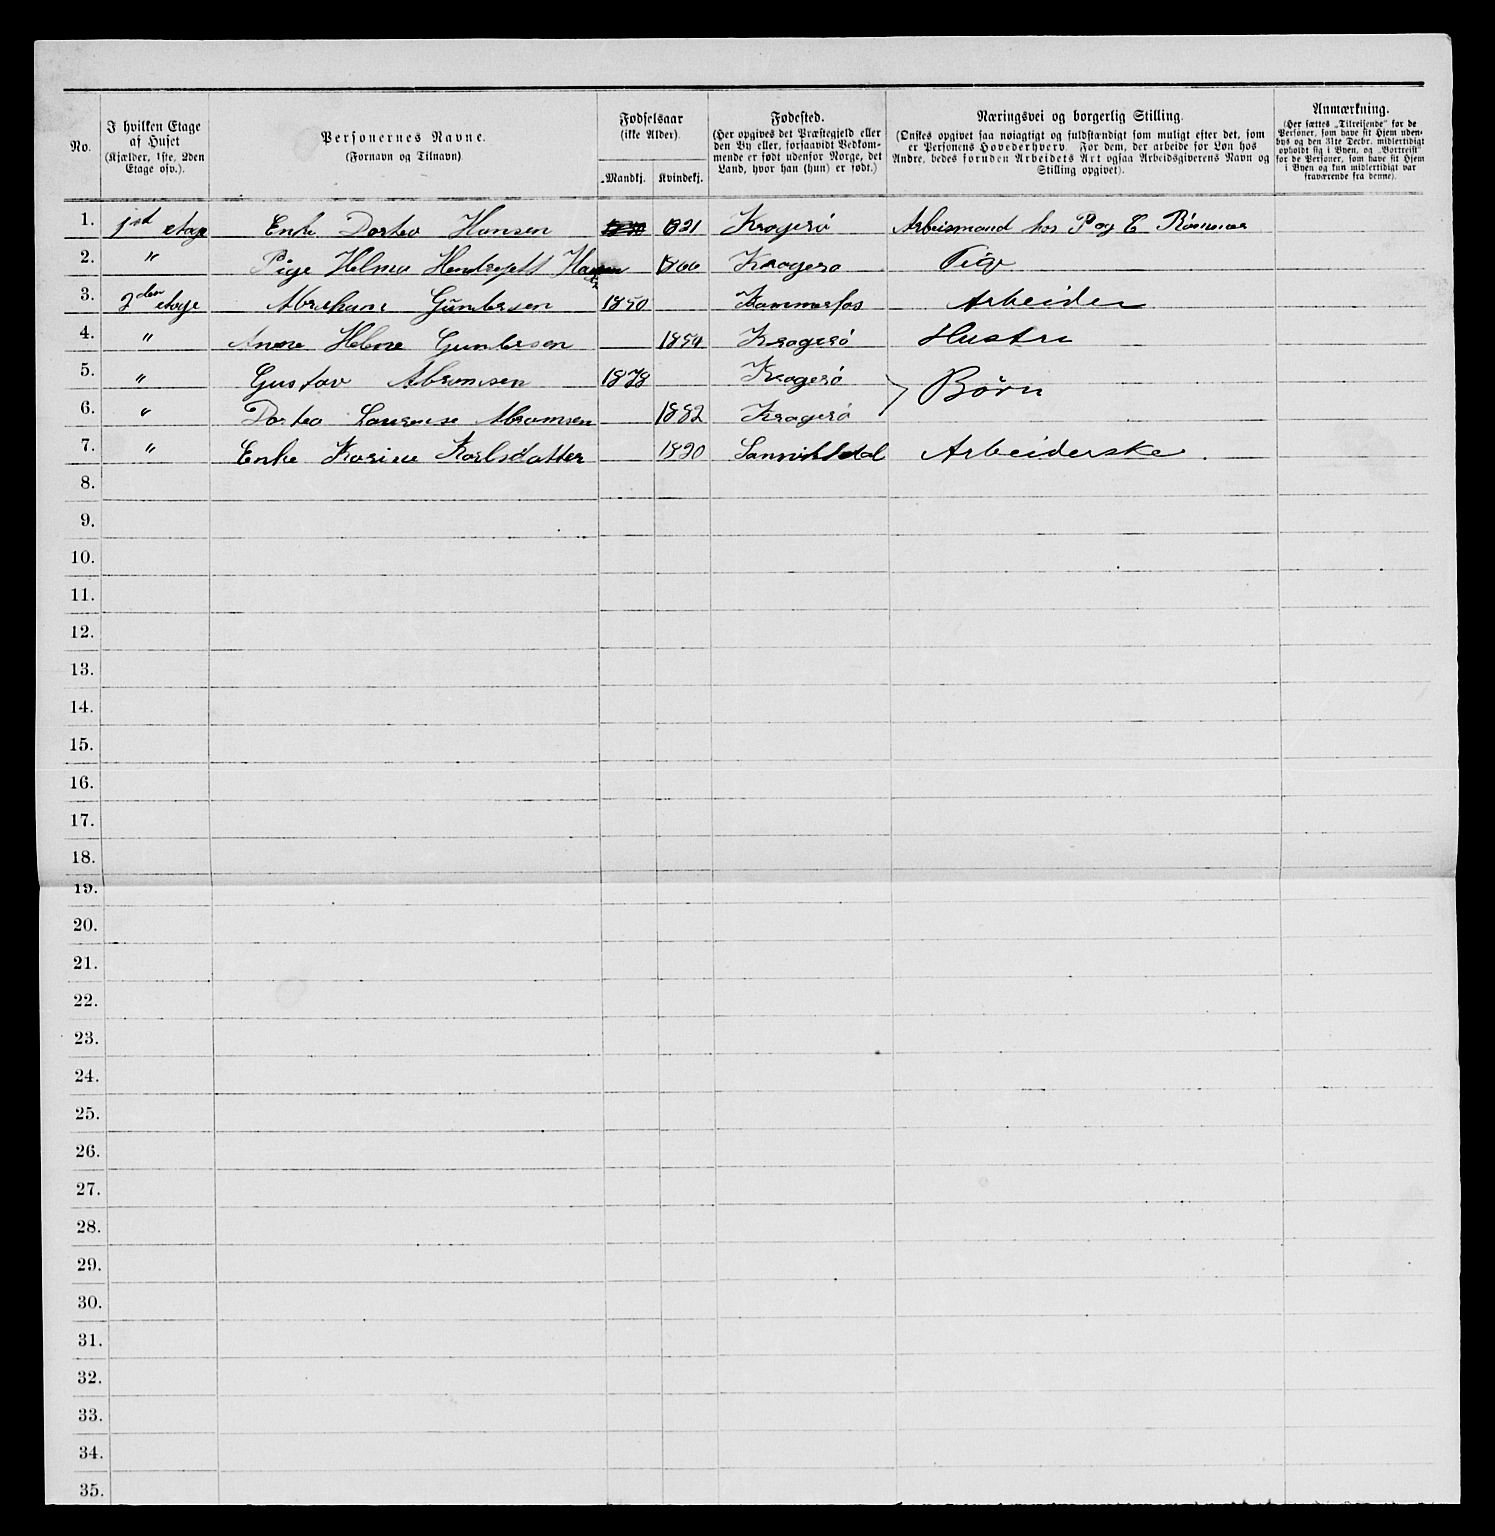 No.
I hvilken Etage af Huset (Kjælder, 1ste, 2den Etage osv.).
Personernes Navne. (Fornavn og Tilnavn).
Fødselsaar (ikke Alder).
Mandkj. Kvindekj.
Fødested. (Her opgives det Præstegjeld eller den By eller, forsaavidt Vedkommende er født udenfor Norge, det Land, hvor han (hun) er født.)
Næringsvei og borgerlig Stilling. (Ønskes opgivet saa nøiagtigt og fuldstændigt som muligt efter det, som er Personens Hovederhverv. For dem, der arbeide for Løn hos Andre, bedes foruden Arbeidets Art ogsaa Arbeidsgiverens Navn og Stilling opgivet).
Anmærkning. (Her sættes „Tilreisende" for de Personer, som have sit Hjem udenbys og den 31te Decbr. midlertidigt opholdt sig i Byen, og „Bortreist" for de Personer, som have sit Hjem i Byen og kun midlertidigt var fraværende fra denne).
1. 1st etage Enke Dortea Hansen 1821 Kragerö Arbeismand hos P og C
2. " Pige Helma Hansen 1866 Kragerø Pige
3. 2den etage Abraham Guntersen 1850 Kammerfos Arbeider
4. " Anne Helene Guntersen Kragerö Hustru
5. " Gustav Abramsen 1878 Kragerö Børn
6. " Dortea Laurense Abramsen 1882 Kragerö
7. " Enke Karine Karlsdatter 1820 Sannikedal Arbeiderske.
8.
9.
10.
11.
12.
13.
14.
15.
16.
17.
18.
19.
20.
21.
22.
23.
24.
25.
26.
27.
28.
29.
30.
31.
32.
33.
34.
35.